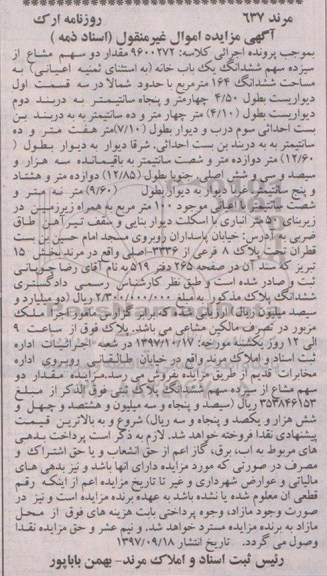 مرند ۶۳۷ روزنامه ارک
آگهی مزایده اموال غیرمنقول (اسناد ذمه)
بموجب پرونده اجرائی کلاسه: ۹۶۰۰۲۷۲ مقدار دو سهم مشاع از
سیزده سهم ششدانگ یک باب خانه (به استثنای ثمنیه اعیانی) به
مساحت ششدانگ ۱۶۴ مترمربع با حدود شمالا در سه قسمت اول
دیواریست بطول ۴/۵۰ چهارمتر و پنجاه سانتیمتر به دربند دوم
دیواریست بطول (۴/۱۰) متر چهار متر و ده سانتیمتر به به دربند بن
بست احداثی سوم درب و دیوار بطول (۷/۱۰)متر هفت متر و ده
سانتیمتر به به دربند بن بست احداثی. شرقا دیوار به دیوار بطول (
۱۲/۶۰) متر دوازده متر و شصت سانتیمتر به باقیمانده سه هزار و
سیصد و سی و شش اصلی، جنوبا بطول (۱۲/۸۵) دوازده متر و هشتاد
و پنج سانتیمتر، غربا دیوار به دیوار بطول (۹/۶۰) متر نه متر و
شصت سانتیمتر با اعیان موجود ۱۰۰ متر مربع به همراه زیرزمین در
زیربنای ۵۰ متر انباری با اسکلت دیوار بنایی و سقف تیرآهن طاق
ضربی به آدرس: خیابان پاسداران روبروی مسجد امام حسین بن بست
قطران تحت پلاک ۸ فرعی از ۳۳۳۶-اصلی واقع در مرند بخش ۱۵
تبریز که سند آن در صفحه ۲۶۵ دفتر ۵۱۹ به نام آقای رضا جویبانی
ثبت و صادر شده است و طبق نظر کارشناس رسمی دادگستری
ششدانگ پلاک مذکور به مبلغ ۲/۳۰۰/۰۰۰/۰۰۰ ریال (دو میلیارد و
سیصد میلیون ریال) ارزیابی شده که برابر گزارش مامور اجرا ملک
مزبور در تصرف مالکین مشاعی می باشد. پلاک فوق از ساعت ۹
الی ۱۲ روز یکشنبه مورخه: ۱۳۹۷/۱۰/۱۷ در شعبه اجرائیات اداره
ثبت اسناد و املاک مرند واقع در خیابان طالقانی روبروی اداره
مخابرات قدیم از طریق مزایده بفروش می رسد. مزایده مقدار دو
سهم مشاع از سیزده سهم ششدانگ پلاک ثبتی فوق الذکر از مبلغ
۳۵۳۸۴۶۱۵۳ ریال (سیصد و پنجاه و سه میلیون و هشتصد و چهل و
شش هزار و یکصد و پنجاه و سه ریال) شروع و به بالاترین قیمت
پیشنهادی نقدا فروخته خواهد شد. لازم به ذکر است پرداخت بدهی
های مربوط به آب، برق، گاز اعم از حق انشعاب و یا حق اشتراک و
مصرف در صورتی که مورد مزایده دارای آنها باشد و نیز بدهی های
مالیاتی و عوارض شهرداری و غیر تا تاریخ مزایده اعم از اینکه رقم
قطعی آن معلوم شده یا نشده باشد به عهده برنده مزایده است و نیز در
صورت وجود مازاد، وجوه پرداختی بابت هزینه های فوق از محل
مازاد به برنده مزایده مسترد خواهد شد. و نیم عشر و حق مزایده نقدا
وصول می گردد. تاریخ انتشار ۱۳۹۷/۰۹/۱۸
رئیس ثبت اسناد و املاک مرند- بهمن باباپور